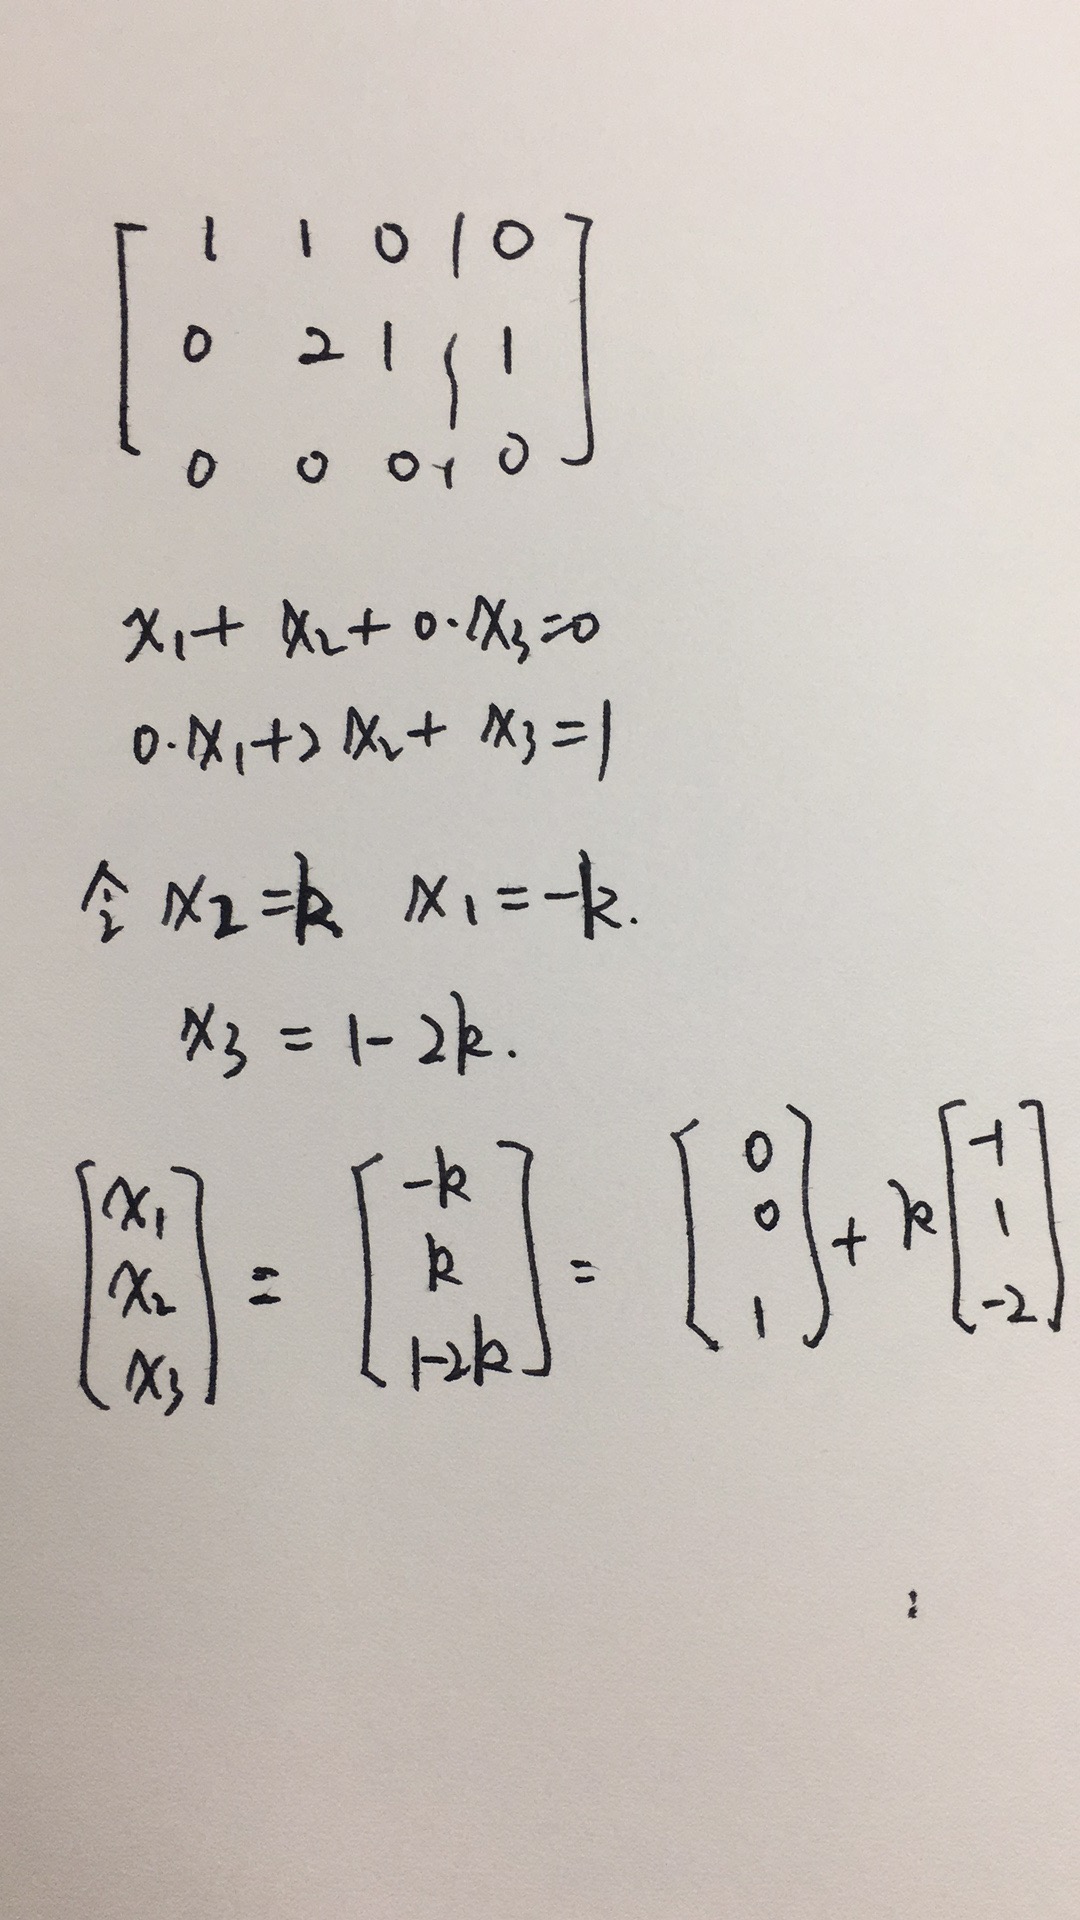 [ 1 1 0 | 0 ]
0 2 1 | 1
0 0 0 | 0
x₁ + x₂ + 0·x₃ = 0
0·x₁ + 2x₂ + x₃ = 1
令 x₂ = k x₁ = -k.
x₃ = 1 - 2k.
[x₁ x₂ x₃] = [-k k 1-2k] = [0 0 1] + k[-1 1 -2]